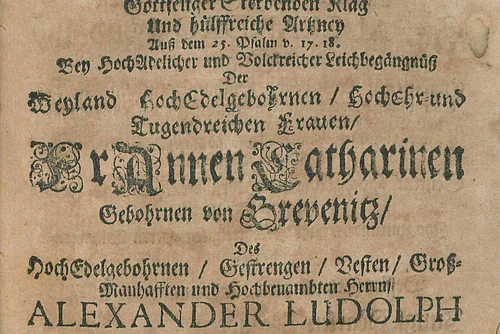 Gottseliger Sterbenden Klag
Und hülffreiche Artzney
Auß dem 25. Psalm v. 17. 18.
Bey HochAdelicher und Volckreicher Leichbegängnüß
Der
Weyland HochEdelgebohrnen / HochEhr- und
Tugendreichen Frauen /
Fr Annen Catharinen
Gebohrnen von Grevenitz /
Des
HochEdelgebohrnen / Gestrengen / Vesten / Groß-
Manhafften und Hochbenambten Herrn
ALEXANDER LUDOLPH